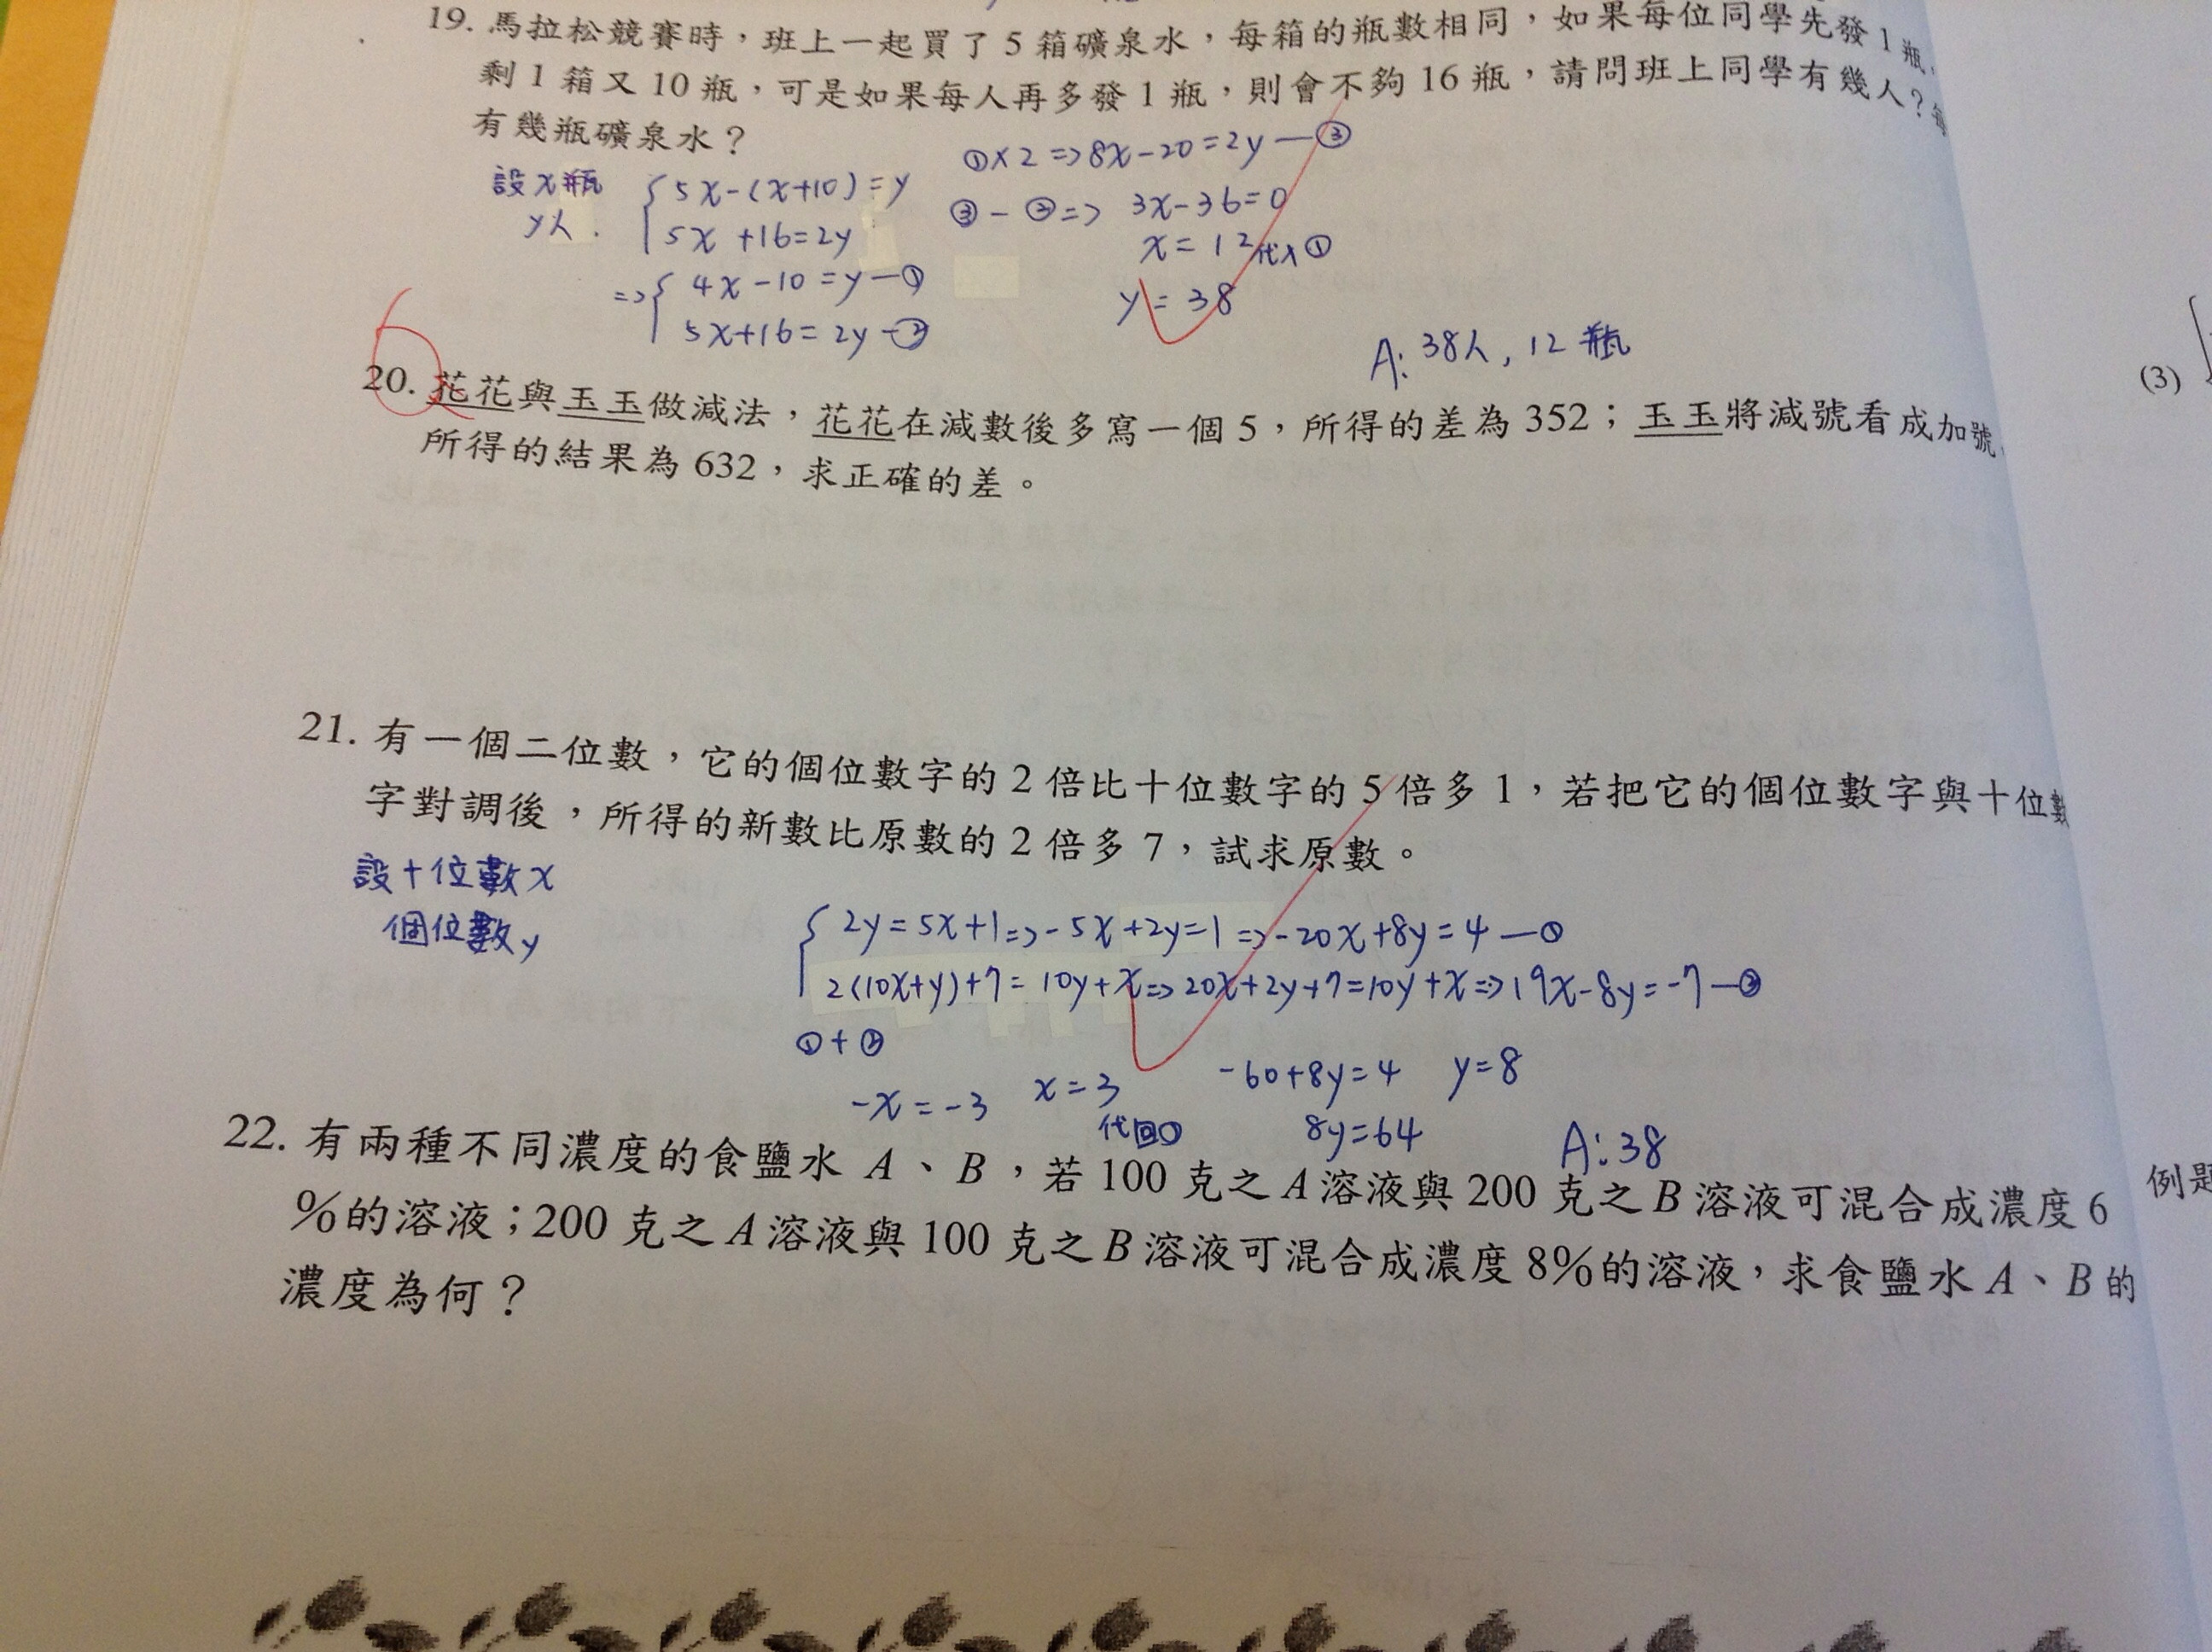 19. 馬拉松競賽時，班上一起買了 5 箱礦泉水，每箱的瓶數相同，如果每位同學先發 1 瓶，
剩 1 箱又 10 瓶，可是如果每人再多發 1 瓶，則會不夠 16 瓶，請問班上同學有幾人？每
有幾瓶礦泉水？
設 x 瓶
y人.
5x-(x+10)=y
5x+16=2y
=> 4x-10=y—①
5x+16=2y—②
①×2=>8x-20=2y—③
③-②=> 3x-36=0
x=12 代入①
y=38
A: 38人, 12瓶
20. 花花與玉玉做減法，花花在減數後多寫一個 5，所得的差為 352；玉玉將減號看成加號，
所得的結果為 632，求正確的差。
21. 有一個二位數，它的個位數字的 2 倍比十位數字的 5 倍多 1，若把它的個位數字與十位數
字對調後，所得的新數比原數的 2 倍多 7，試求原數。
設十位數x
個位數y
2y=5x+1=>-5x+2y=1=>-20x+8y=4—①
2(10x+y)+7=10y+x=>20x+2y+7=10y+x=>19x-8y=-7—②
①+②
-x=-3 x=3
代回①
-60+8y=4 y=8
8y=64
A:38
22. 有兩種不同濃度的食鹽水 A、B，若 100 克之 A 溶液與 200 克之 B 溶液可混合成濃度 6
%的溶液；200 克之 A 溶液與 100 克之 B 溶液可混合成濃度 8%的溶液，求食鹽水 A、B 的
濃度為何？
(3)
例題